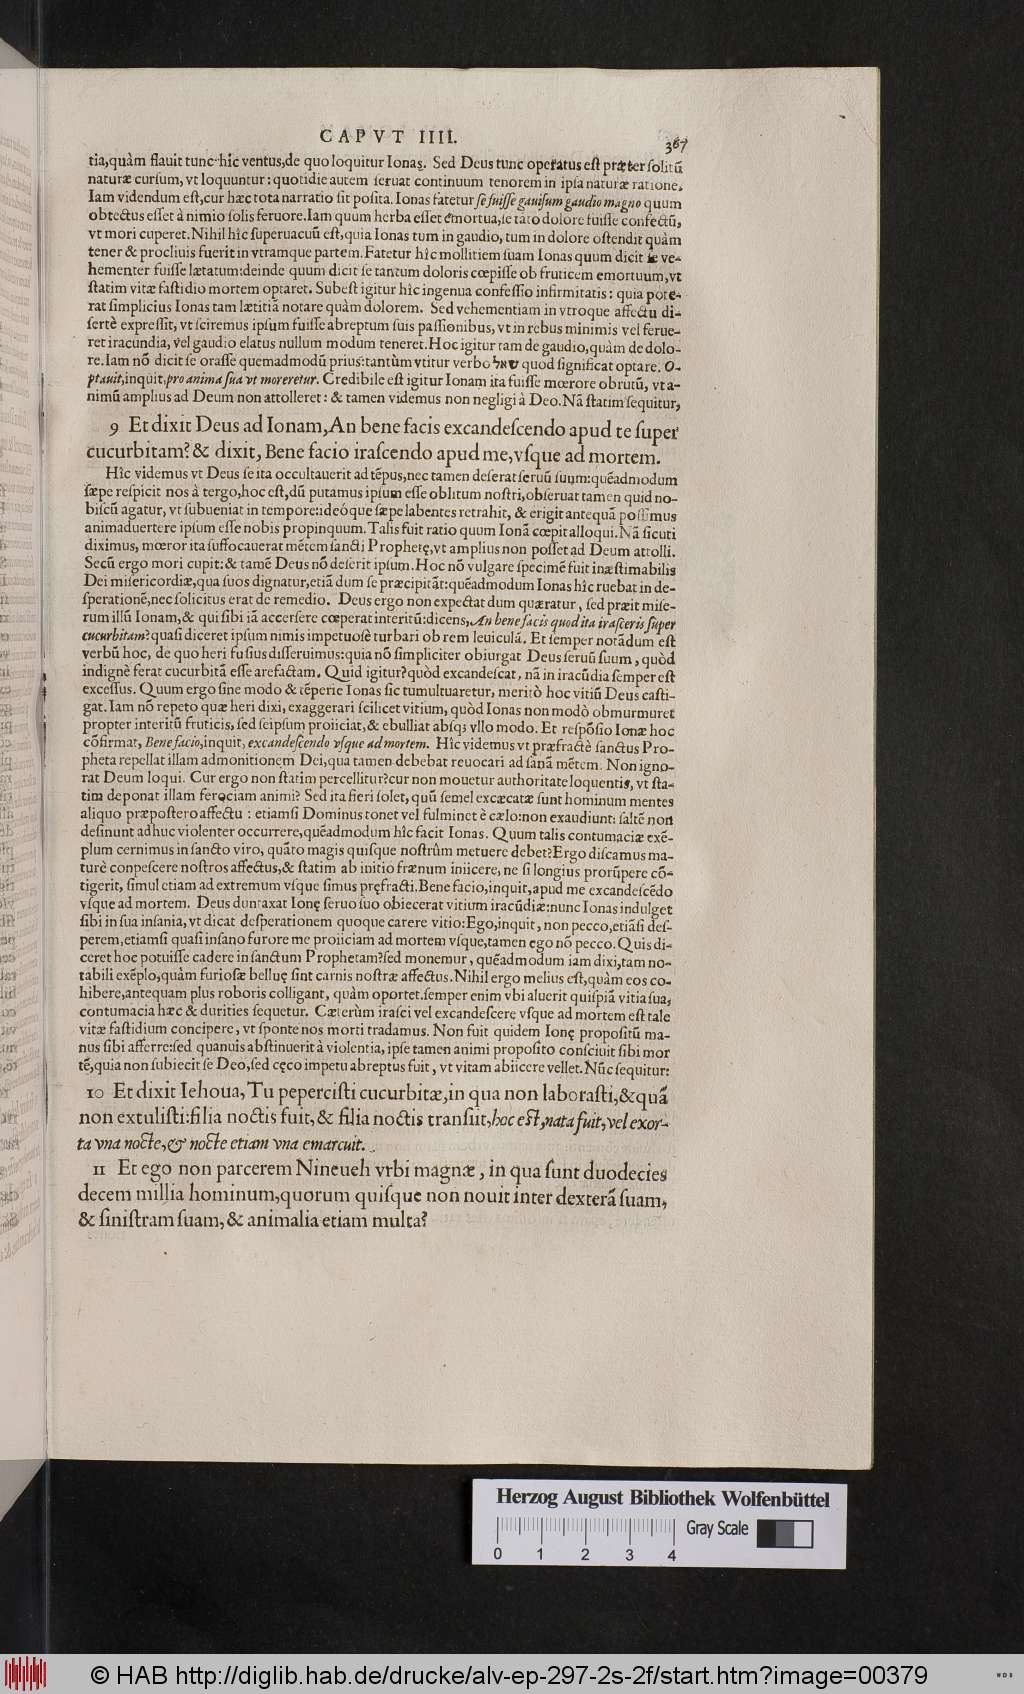 CAPVT IIII.
367
tia,quàm flauit tunc hîc ventus,de quo loquitur Ionas. Sed Deus tunc operatus est præter solitũ
naturæ cursum, vt loquuntur: quotidie autem seruat continuum tenorem in ipsa naturæ ratione.
Iam videndum est,cur hæc tota narratio sit posita. Ionas fatetur se fuisse gauisum gaudio magno quum
obtectus esset à nimio solis feruore.Iam quum herba esset emortua,se tãto dolore fuisse confectũ,
vt mori cuperet.Nihil hîc superuacuũ est,quia Ionas tum in gaudio, tum in dolore ostendit quàm
tener & procliuis fuerit in vtramque partem.Fatetur hîc mollitiem suam Ionas quum dicit se ve-
hementer fuisse lætatum:deinde quum dicit se tantum doloris cœpisse ob fruticem emortuum,vt
statim vitæ fastidio mortem optaret. Subest igitur hîc ingenua confessio infirmitatis: quia pote-
rat simplicius Ionas tam lætitiã notare quàm dolorem. Sed vehementiam in vtroque affectu di-
sertè expressit, vt sciremus ipsum fuisse abreptum suis passionibus, vt in rebus minimis vel ferue-
ret iracundia, vel gaudio elatus nullum modum teneret.Hoc igitur tam de gaudio,quàm de dolo-
re.Iam nõ dicit se orasse quemadmodũ prius:tantùm vtitur verbo שאל quod significat optare. O-
ptauit,inquit,pro anima sua vt moreretur. Credibile est igitur Ionam ita fuisse mœrore obrutũ, vt a-
nimũ amplius ad Deum non attolleret: & tamen videmus non negligi à Deo.Nã statim sequitur,
9 Et dixit Deus ad Ionam,An bene facis excandescendo apud te super
cucurbitam? & dixit, Bene facio irascendo apud me,vsque ad mortem.
Hîc videmus vt Deus se ita occultauerit ad tẽpus,nec tamen deserat seruũ suum:quẽadmodum
sæpe respicit nos à tergo,hoc est,dũ putamus ipsum esse oblitum nostri,obseruat tamen quid no-
biscũ agatur, vt subueniat in tempore:ideóque sæpe labentes retrahit, & erigit antequã possimus
animaduertere ipsum esse nobis propinquum. Talis fuit ratio quum Ionã cœpit alloqui. Nã sicuti
diximus, mœror ita suffocauerat mẽtem sancti Prophetę,vt amplius non posset ad Deum attolli.
Secũ ergo mori cupit:& tamẽ Deus nõ deserit ipsum.Hoc nõ vulgare specimẽ fuit inæstimabilis
Dei misericordiæ,qua suos dignatur,etiã dum se præcipitãt:quẽadmodum Ionas hîc ruebat in de-
sperationẽ,nec solicitus erat de remedio. Deus ergo non expectat dum quæratur, sed præit mise-
rum illũ Ionam,& qui sibi iã accersere cœperat interitũ:dicens,An bene facis quod ita irasceris super
cucurbitam?quasi diceret ipsum nimis impetuosè turbari ob rem leuiculã. Et semper notãdum est
verbũ hoc, de quo heri fusius disseruimus:quia nõ simpliciter obiurgat Deus seruũ suum, quòd
indignè ferat cucurbitã esse arefactam. Quid igitur?quòd excandescat, nã in iracũdia semper est
excessus. Quum ergo sine modo & tẽperie Ionas sic tumultuaretur, meritò hoc vitiũ Deus casti-
gat. Iam nõ repeto quæ heri dixi, exaggerari scilicet vitium, quòd Ionas non modò obmurmuret
propter interitũ fruticis, sed seipsum proiiciat,& ebulliat absq; vllo modo. Et respõsio Ionæ hoc
cõfirmat, Bene facio,inquit, excandescendo vsque ad mortem. Hîc videmus vt præfractè sanctus Pro-
pheta repellat illam admonitionem Dei,qua tamen debebat reuocari ad sanã mẽtem. Non igno-
rat Deum loqui. Cur ergo non statim percellitur?cur non mouetur authoritate loquentis, vt sta-
tim deponat illam ferociam animi? Sed ita fieri solet, quũ semel excæcatæ sunt hominum mentes
aliquo præpostero affectu : etiamsi Dominus tonet vel fulminet è cælo:non exaudiunt: saltẽ non
desinunt adhuc violenter occurrere,quẽadmodum hîc facit Ionas. Quum talis contumaciæ exẽ-
plum cernimus in sancto viro, quãto magis quisque nostrûm metuere debet?Ergo discamus ma-
turè conpescere nostros affectus,& statim ab initio frænum iniicere, ne si longius prorũpere cõ-
tigerit, simul etiam ad extremum vsque simus pręfracti.Bene facio,inquit,apud me excandescẽdo
vsque ad mortem. Deus duntaxat Ionę seruo suo obiecerat vitium iracũdiæ:nunc Ionas indulget
sibi in sua insania, vt dicat desperationem quoque carere vitio:Ego,inquit, non pecco,etiãsi des-
perem,etiamsi quasi insano furore me proiiciam ad mortem vsque,tamen ego nõ pecco.Quis di-
ceret hoc potuisse cadere in sanctum Prophetam?sed monemur, quẽadmodum iam dixi,tam no-
tabili exẽplo,quàm furiosæ belluę sint carnis nostræ affectus.Nihil ergo melius est,quàm eos co-
hibere,antequam plus roboris colligant, quàm oportet.semper enim vbi aluerit quispiã vitia sua,
contumacia hæc & durities sequetur. Cæterùm irasci vel excandescere vsque ad mortem est tale
vitæ fastidium concipere, vt sponte nos morti tradamus. Non fuit quidem Ionę propositũ ma-
nus sibi afferre:sed quanuis abstinuerit à violentia, ipse tamen animi proposito consciuit sibi mor
tẽ,quia non subiecit se Deo,sed cęco impetu abreptus fuit, vt vitam abiicere vellet. Nũc sequitur:
10 Et dixit Iehoua, Tu pepercisti cucurbitæ,in qua non laborasti,& quã
non extulisti:filia noctis fuit, & filia noctis transiit,hoc est,nata fuit,vel exor-
ta vna nocte,& nocte etiam vna emarcuit.
11 Et ego non parcerem Nineueh vrbi magnæ, in qua sunt duodecies
decem millia hominum,quorum quisque non nouit inter dexterã suam,
& sinistram suam, & animalia etiam multa?
Herzog August Bibliothek Wolfenbüttel
Gray Scale
0 1 2 3 4
© HAB http://diglib.hab.de/drucke/alv-ep-297-2s-2f/start.htm?image=00379